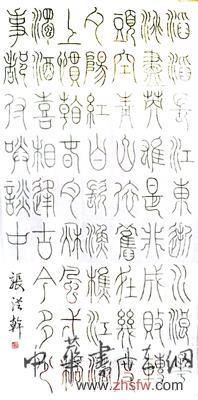 滾滾長江東逝水浪花
淘盡英雄是非成敗轉
頭空青山依舊在幾度
夕陽紅白髮漁樵江渚
上慣看春月秋風一壺
濁酒喜相逢古今多少
事都付笑談中
張
中華書法網
www.zhsfw.com